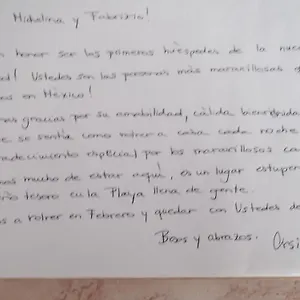 Michelina y Fabrizio!
honor ser los primeros huéspedes de la
! Ustedes son las personas más maravillosas
en México!
gracias por su amabilidad, cálida bienvenida
se sentía como volver a casa cada noche
especial por los maravillosos
mucho de estar aquí, es un lugar
tesoro en la Playa llena de gente.
a volver en Febrero y quedar con Ustedes de
Besos y abrazos. Orsi